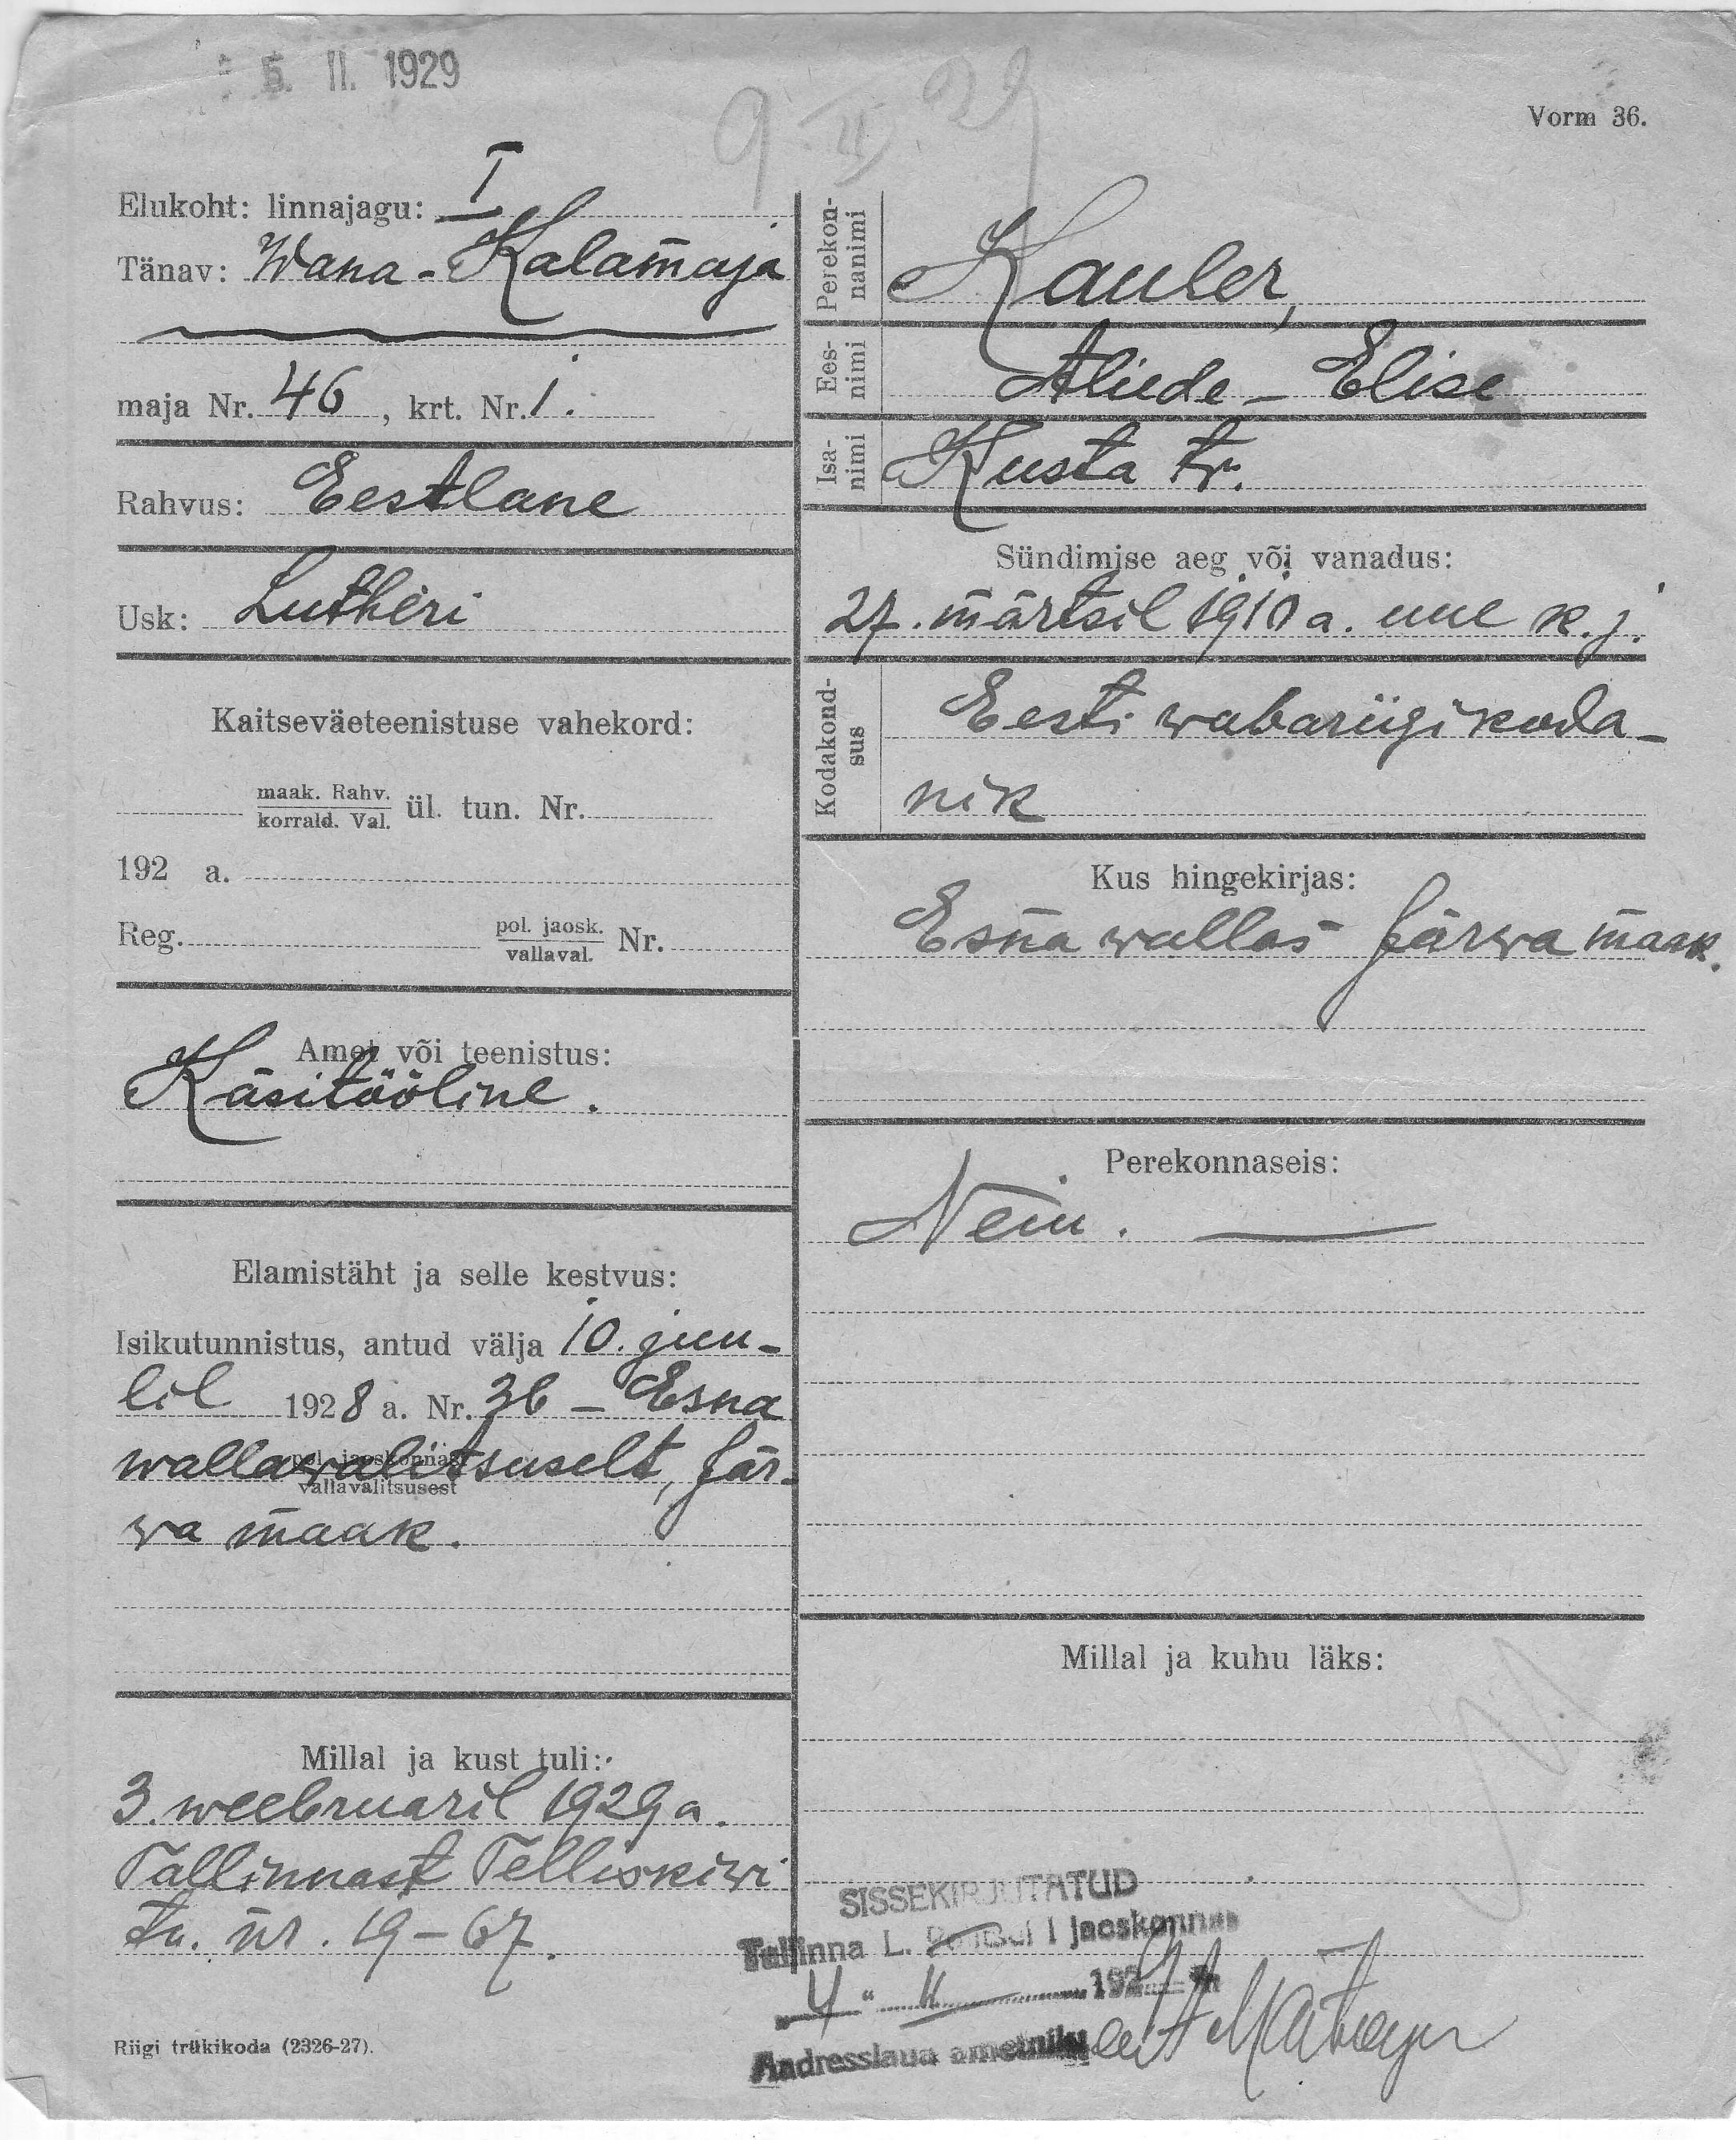 5. II. 1929
9. II 29
Vorm 36.
Elukoht: linnajagu: I
Tänav: Wana-Kalamaja
maja Nr. 46, krt. Nr. 1.
Rahvus: Eestlane
Usk: Lutheri
Kaitseväeteenistuse vahekord:
maak. Rahv.
korrald. Val. ül. tun. Nr.
192 a.
Reg. pol. jaosk.
vallaval. Nr.
Amet või teenistus:
Käsitööline.
Elamistäht ja selle kestvus:
Isikutunnistus, antud välja 10. juu-
lil 1928 a. Nr. 36 - Esna
pol. jaoskonnast
wallawalitsuselt, Jär-
vallavalitsusest
wa maak.
Millal ja kust tuli:
3. weebruaril 1929 a.
Tallinnast Telliskiwi
tn. nr. 19-67.
Riigi trükikoda (2326-27).
Perekon-
nanimi
Kauler,
Ees-
nimi
Aliede - Elise
Isa-
nimi
Kusta tr.
Sündimise aeg või vanadus:
27. märtsil 1910 a. uue k. j.
Kodakond-
sus
Eesti wabariigi koda-
nik
Kus hingekirjas:
Esna wallas Järwa maak.
Perekonnaseis:
Neiu.
Millal ja kuhu läks:
SISSEKIRJUTATUD
Tallinna L. Politsei I jaoskonnas
4 " II 1929 a
Andresslaua ametnik